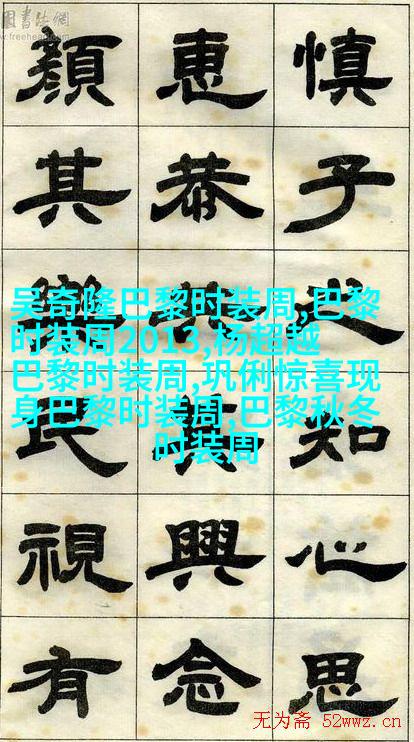 國書法網
慎子之知心思
惠恭興念
顏其樂民視有
吴奇隆巴黎时装周,巴黎
时装周2013,杨超越
巴黎时装周,巩俐惊喜现
身巴黎时装周,巴黎秋冬
时装周
无为斋 52wwz.cn